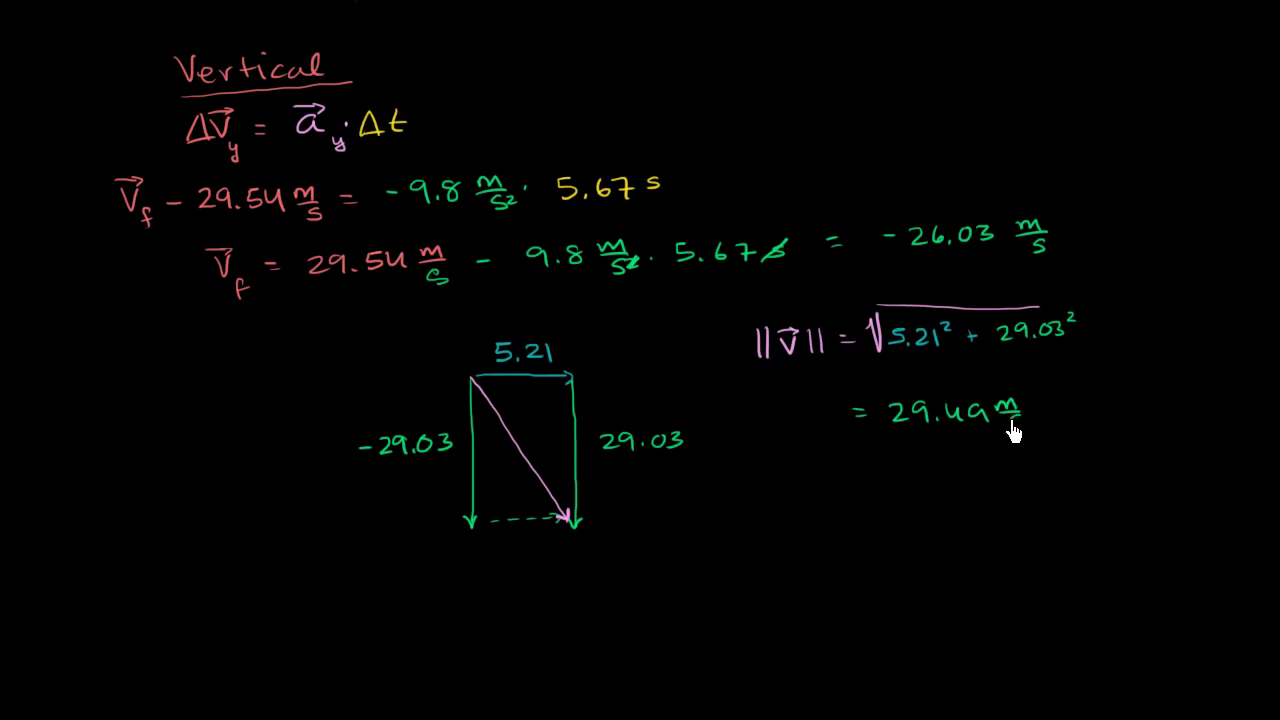 Vertical
Δv⃗y = a⃗y · Δt
v⃗f - 29.54 m/s = -9.8 m/s² · 5.67 s
v⃗f = 29.54 m/s - 9.8 m/s² · 5.67 s = -26.03 m/s
||v⃗|| = √5.21² + 29.03²
5.21
= 29.49 m/s
-29.03 29.03